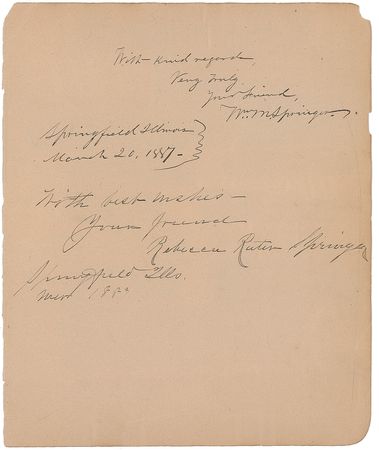 With kind regards,
Very truly
Your friend,
Wm. M Springer.
Springfield Illinois
March 20, 1887.-
With best wishes -
Your friend
Rebecca Ruter Springer
Springfield Ills.